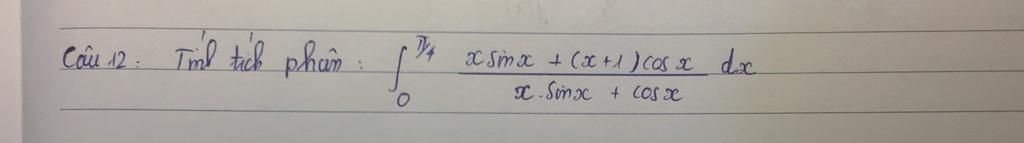 Câu 12: Tính tích phân: ∫₀^{π/4} (x sinx + (x+1)cosx)/(x.sinx + cosx) dx